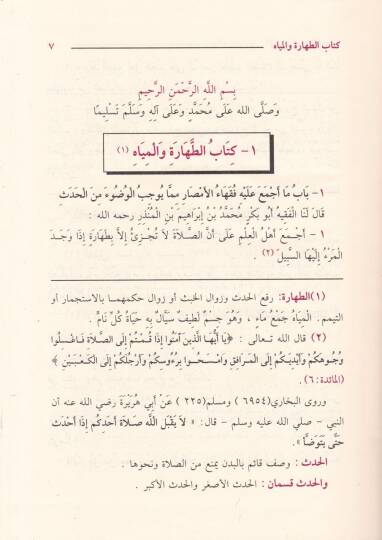 كتاب الطهارة والمياه ٧
بِسْمِ اللَّهِ الرَّحْمَنِ الرَّحِيمِ
وَصَلَّى الله عَلَى مُحَمَّدٍ وَعَلَى آلِهِ وَسَلَّمَ تَسْلِيمًا
١ - كِتَابُ الطَّهَارَةِ وَالْمِيَاهِ (١)
١ - بَابُ مَا أَجْمَعَ عَلَيْهِ فُقَهَاءُ الأَمْصَارِ مِمَّا يُوجِبُ الْوُضُوءَ مِنَ الْحَدَثِ
قَالَ لَنَا الْفَقِيهُ أَبُو بَكْرٍ مُحَمَّدُ بْنُ إِبْرَاهِيمَ بْنِ الْمُنْذِرِ رحمه الله :
١ - أَجْمَعَ أَهْلُ الْعِلْمِ عَلَى أَنَّ الصَّلاَةَ لاَ تُجْزِئُ إِلاَّ بِطَهَارَةٍ إِذَا وَجَدَ
الْمَرْءُ إِلَيْهَا السَّبِيلَ (٢) .
(١)الطهارة: رفع الحدث وزوال الخبث أو زوال حكمهما بالاستجمار أو
التيمم . الْمِيَاهُ جَمْعُ مَاءٍ ، وَهُوَ جِسْمٌ لَطِيفٌ سَيَّالٌ بِهِ حَيَاةُ كُلِّ نَامٍ .
(٢) قال الله تعالى : ﴿يَا أَيُّهَا الَّذِينَ آمَنُوا إِذَا قُمْتُمْ إِلَى الصَّلاةِ فَاغْسِلُوا
وُجُوهَكُمْ وَأَيْدِيَكُمْ إِلَى الْمَرَافِقِ وَامْسَحُوا بِرُءُوسِكُمْ وَأَرْجُلَكُمْ إِلَى الْكَعْبَيْنِ ﴾
(المائدة:٦).
وروى البخاري(٦٩٥٤ ) ومسلم(٢٢٥ ) عَنْ أَبِي هُرَيْرَةَ رضي الله عنه أن
النبي - صلي الله عليه وسلم - قال: « لاَ يَقْبَلُ اللَّهُ صَلاَةَ أَحَدِكُمْ إِذَا أَحْدَثَ
حَتَّى يَتَوَضَّأَ ».
الحدث : وصف قائم بالبدن يمنع من الصلاة ونحوها .
والحدث قسمان : الحدث الأصغر والحدث الأكبر .